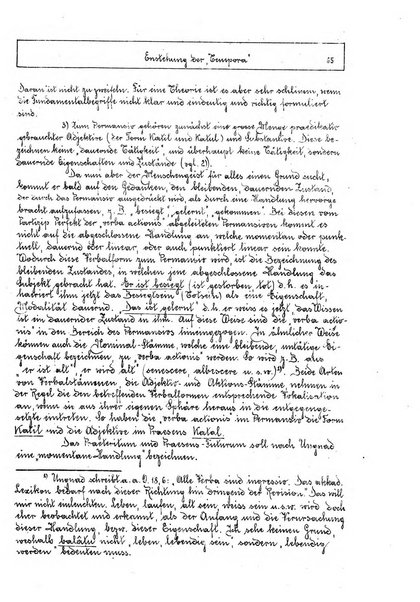 Enstehung der „Tempora“ 15
Daran ist nicht zu zweifeln. Für eine Theorie ist es aber sehr schlimm, wenn
die Fundamentalbegriffe nicht klar und eindeutig und richtig formuliert
sind.
3) Zum Permansiv gehören zunächst eine grosse Menge praedikativ
gebrauchter Adjektive (der Form Katil und Katul) und Substantive. Diese be-
zeichnen keine „dauernde Tätigkeit“, und überhaupt keine Tätigkeit, sondern
dauernde Eigenschaften und Zustände (vgl. 21).
Da nun aber der Menschengeist für alles einen Grund sucht,
kommt er bald auf den Gedanken, den bleibenden, dauernden Zustand,
der durch das Permansiv ausgedrückt wird, als durch eine Handlung hervorge-
bracht aufzufassen, z.B. „besiegt“, „gelernt“, „gekommen“. Bei diesen vom
Particip Perfekt der „verba actionis“ abgeleiteten Permansiven kommt es
nicht auf die abgeschlossene Handlung an, welche momentan oder punk-
tuell, dauernd oder linear, oder auch punktiert linear sein konnte.
Wodurch diese Verbalform zum Permansiv wird, ist die Bezeichnung des
bleibenden Zustandes, in welchen jene abgeschlossene Handlung das
Subjekt gebracht hat. Er ist besiegt (ist gestorben, tot) d.h. es in-
haeriert ihm jetzt das Besiegtsein (Totsein) als eine Eigenschaft,
Modalität dauernd. „Das ist gelernt“ d.h. er weiss es jetzt, das Wissen
ist ein dauernder Zustand in ihm. Auf diese Weise sind die „verba actio-
nis“ in den Bereich des Permansivs hineingezogen. In ähnlicher Weise
können auch die Nominal-Stämme, welche eine bleibende, untätige Ei-
genschaft bezeichnen, zu „verba actionis“ werden. So wird z.B. aus
„er ist alt“, „er wird alt“ (senescere, albescere u.s.w.)⁹⁾. Beide Arten
von Verbalstämmen, die Adjektiv- und Aktions-Stämme, nehmen in
der Regel die den betreffenden Verbalformen entsprechende Vokalisation
an, wenn sie aus ihrer eigenen Sphäre heraus in die entgegenge-
setzte eintreten. So haben die „verba actionis“ im Permansiv die Form
Katil und die Adjektive im Praesens Katal.
Das Praeteritum und Praesens-Futurum soll nach Ungnad
eine „momentane Handlung“ bezeichnen.
⁹⁾ Ungnad schreibt a.a.O. 18,6: „Alle Verba sind ingressiv. Das akkad.
Lexikon bedarf nach dieser Richtung hin dringend der Revision.“ Das will
mir nicht einleuchten. Leben, laufen, alt sein, weiss sein u.s.w. wird doch
eher beobachtet und erkannt, als der Anfang und die Verursachung
dieser Handlung, bezw. dieser Eigenschaft. Ich sehe keinen Grund,
weshalb balâtu nicht „leben, lebendig sein“, sondern „lebendig
werden“ bedeuten muss.